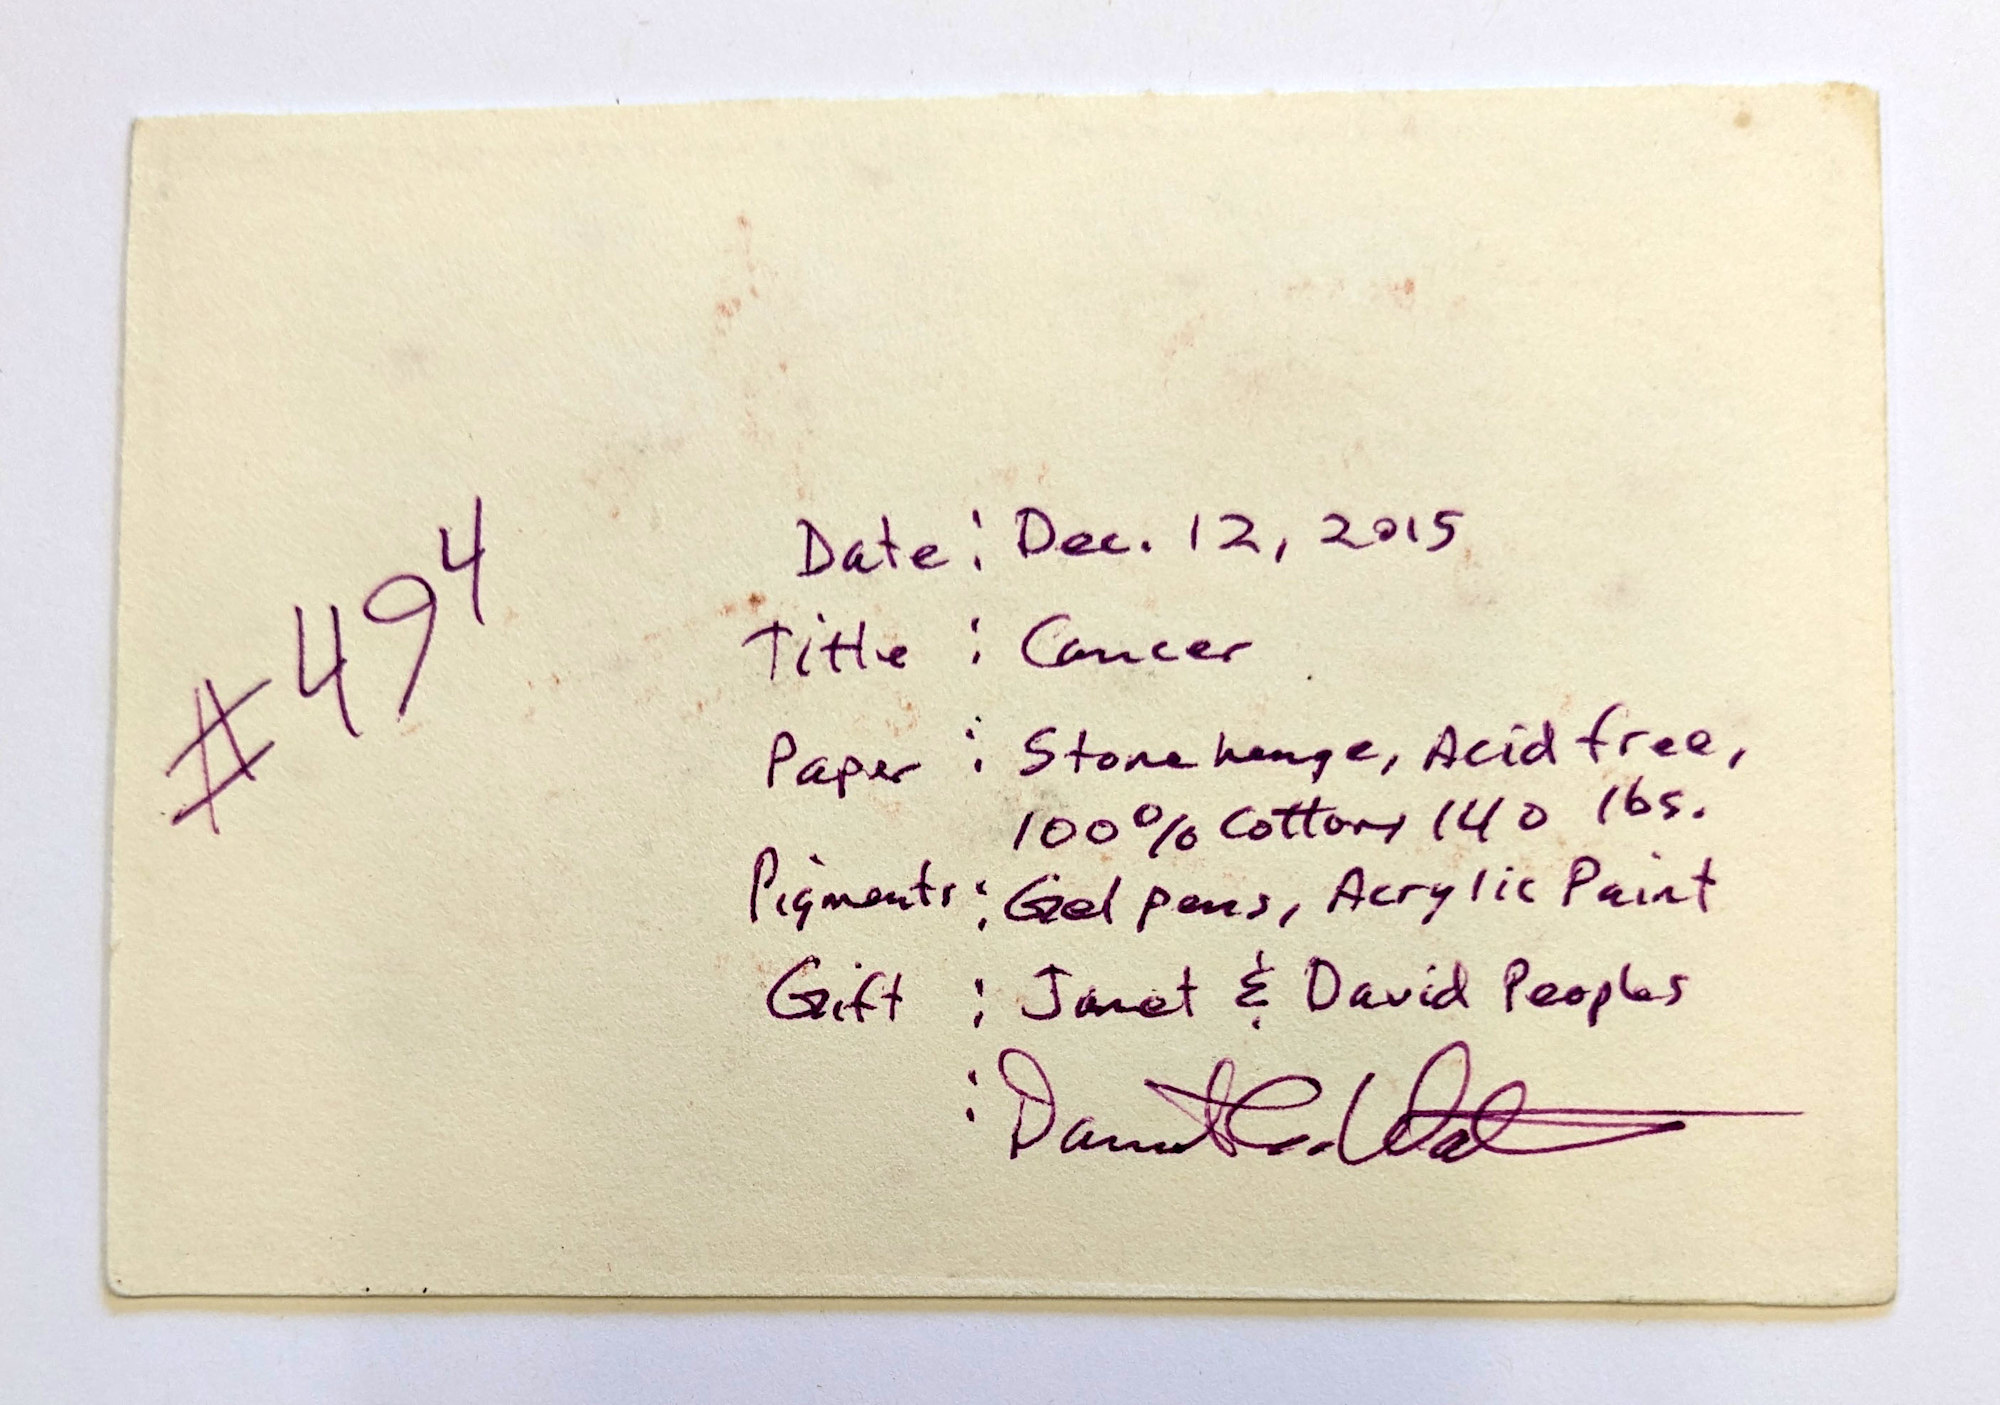 #494
Date : Dec. 12, 2015
Title : Cancer
Paper : Stonehenge, Acid free,
100% Cotton, 140 lbs.
Pigments : Gel pens, Acrylic Paint
Gift : Janet & David Peoples
: